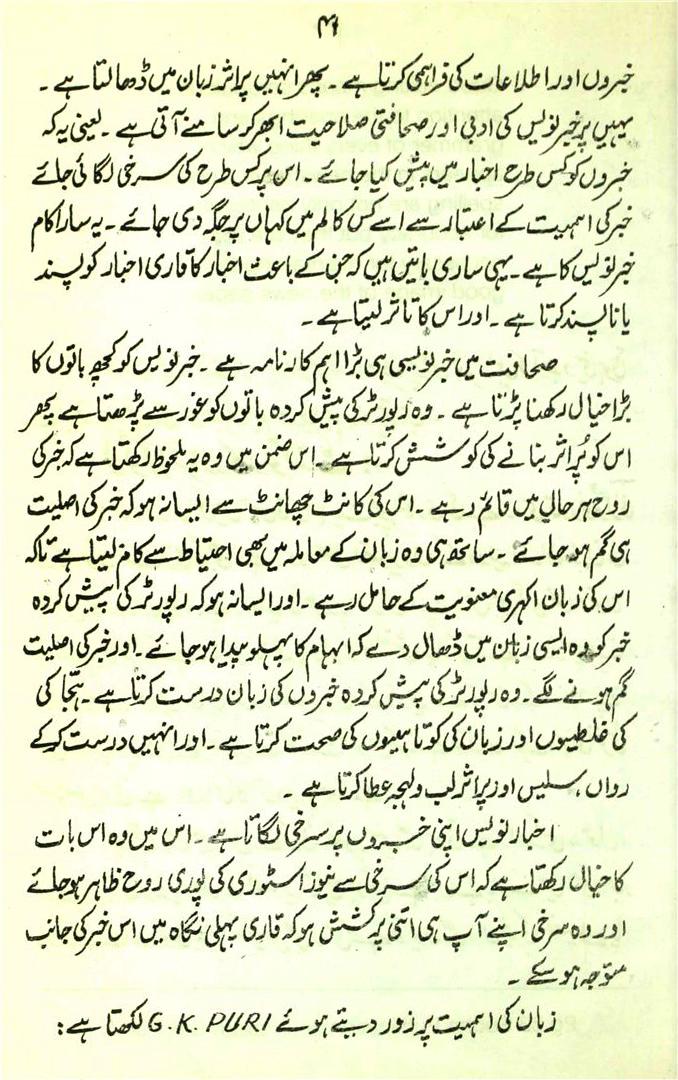 ۴۱
خبروں اور اطلاعات کی فراہمی کرتا ہے ۔ پھر انہیں پر اثر زبان میں ڈھالتا ہے ۔
یہیں پر خبر نویس کی ادبی اور صحافتی صلاحیت ابھر کر سامنے آتی ہے ۔ یعنی یہ کہ
خبروں کو کس طرح اخبار میں پیش کیا جائے ۔ اس پر کس طرح کی سرخی لگائی جائے
خبر کی اہمیت کے اعتبار سے اسے کس کالم میں کہاں پر جگہ دی جائے ۔ یہ سارا کام
خبر نویس کا ہے ۔ یہی ساری باتیں ہیں کہ جن کے باعث اخبار کا قاری اخبار کو پسند
یا نا پسند کرتا ہے ۔ اور اس کا تاثر لیتا ہے ۔
صحافت میں خبر نویسی ہی بڑا اہم کارنامہ ہے ۔ خبر نویس کو کچھ باتوں کا
بڑا خیال رکھنا پڑتا ہے ۔ وہ رپورٹر کی پیش کردہ باتوں کو غور سے پڑھتا ہے پھر
اس کو پُر اثر بنانے کی کوشش کرتا ہے ۔ اس ضمن میں وہ یہ ملحوظ رکھتا ہے کہ خبر کی
روح ہر حال میں قائم رہے ۔ اس کی کانٹ چھانٹ سے ایسا نہ ہو کہ خبر کی اصلیت
ہی گم ہو جائے ۔ ساتھ ہی وہ زبان کے معاملہ میں بھی احتیاط سے کام لیتا ہے تاکہ
اس کی زبان اکہری معنویت کے حامل رہے ۔ اور ایسا نہ ہو کہ رپورٹر کی پیش کردہ
خبر کو وہ ایسی زبان میں ڈھال دے کہ ابہام کا پہلو پیدا ہو جائے ۔ اور خبر کی اصلیت
گم ہونے لگے ۔ وہ رپورٹر کی پیش کردہ خبروں کی زبان درست کرتا ہے ۔ ہجا کی
کی غلطیوں اور زبان کی کوتاہیوں کی صحت کرتا ہے ۔ اور انہیں درست کرکے
رواں ، سلیس اور پر اثر لب و لہجہ عطا کرتا ہے ۔
اخبار نویس اپنی خبروں پر سرخی لگاتا ہے ۔ اس میں وہ اس بات
کا خیال رکھتا ہے کہ اس کی سرخی سے نیوز اسٹوری کی پوری روح ظاہر ہو جائے
اور وہ سرخی اپنے آپ ہی اتنی پر کشش ہو کہ قاری پہلی نگاہ میں اس خبر کی جانب
متوجہ ہو سکے ۔
زبان کی اہمیت پر زور دیتے ہوئے G.K. PURI لکھتا ہے :